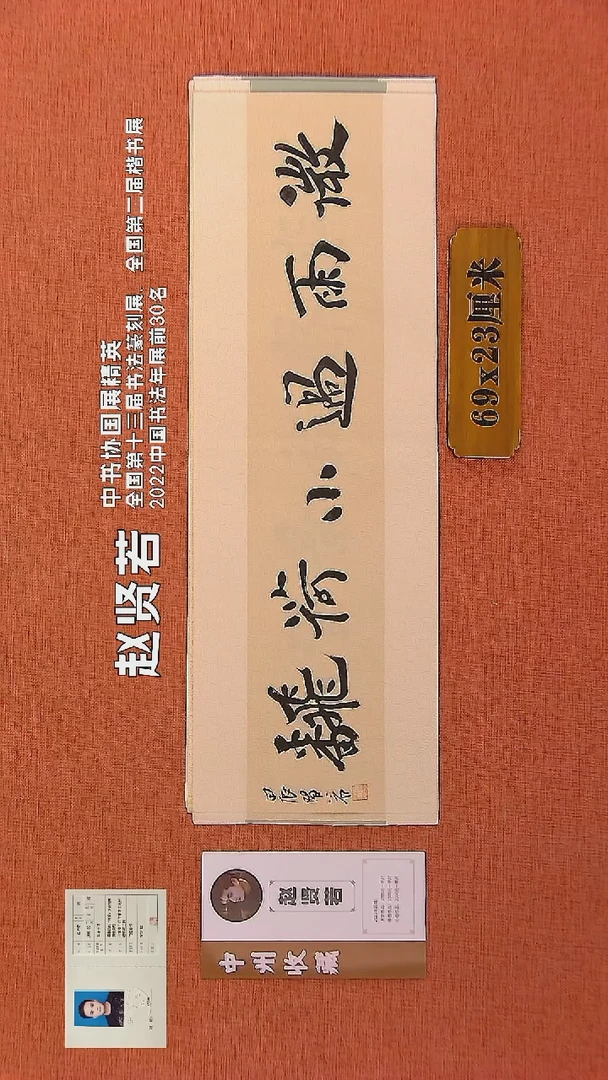 中书协国展精英
全国第十三届书法篆刻展、全国第二届楷书展
赵贤若
2022中国书法年展前30名
微雨過小荷翻
69x23厘米
赵贤若
中州收藏